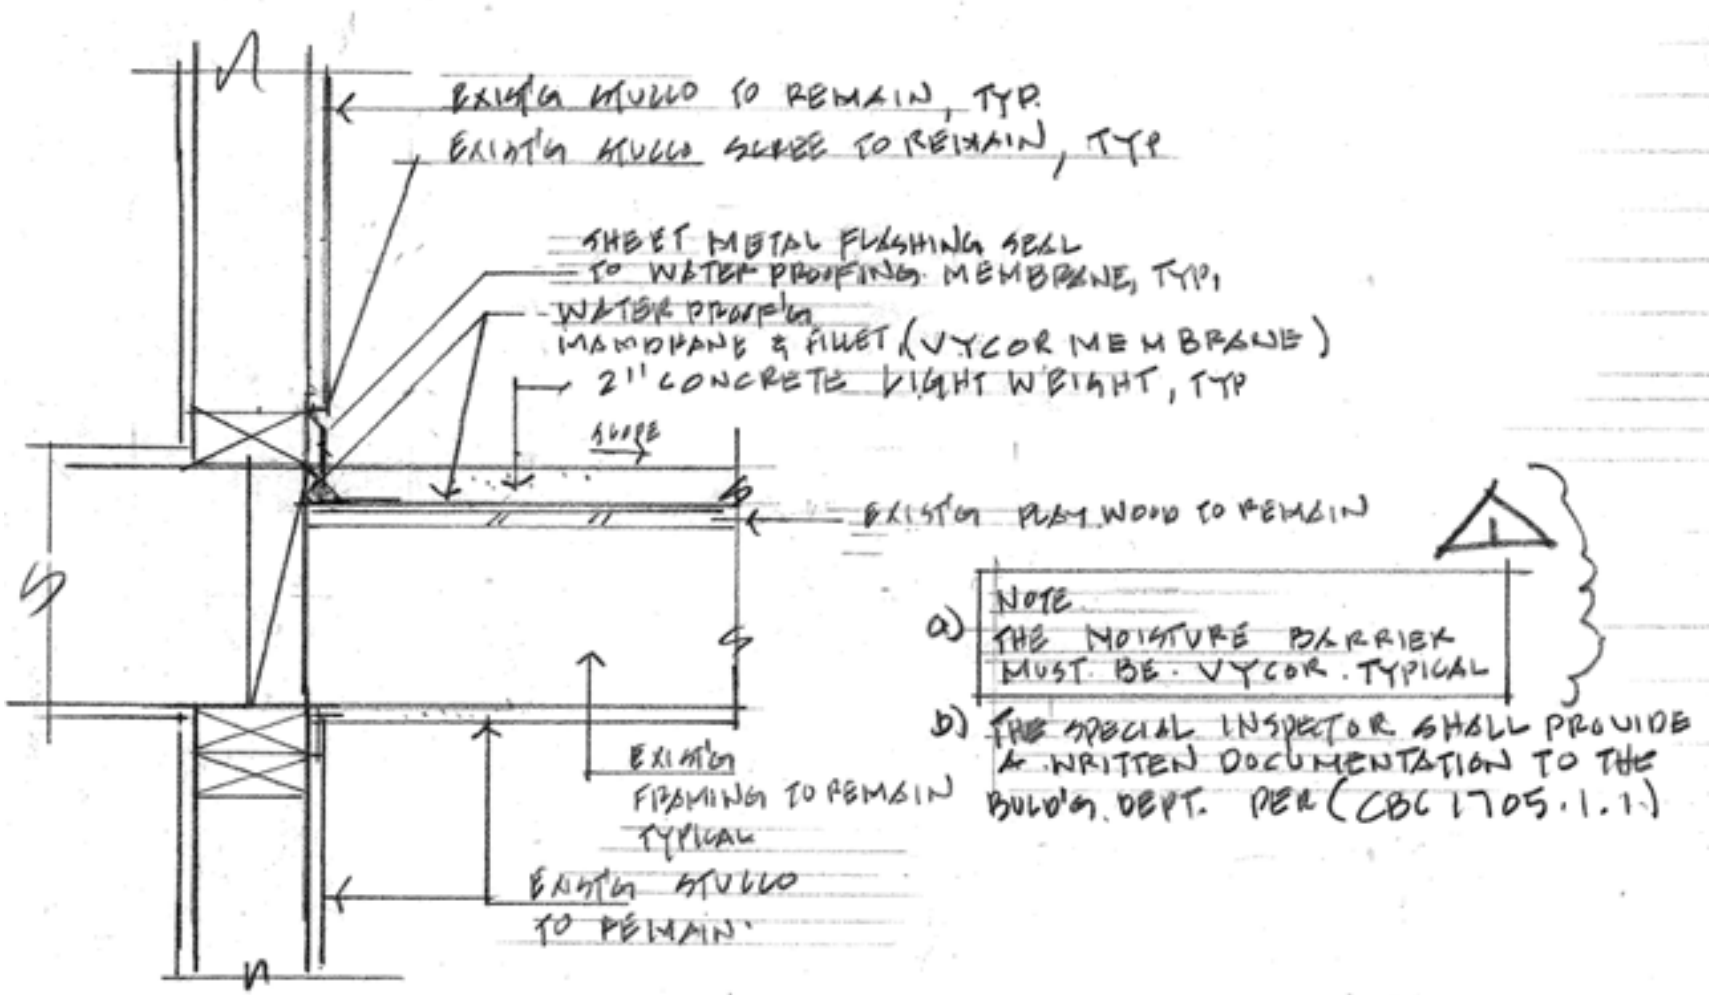 EXIST'G STUCCO TO REMAIN, TYP.
EXIST'G STUCCO SCREE TO REMAIN, TYP
SHEET METAL FLASHING SEAL
TO WATER PROOFING MEMBRANE, TYP.
WATER PROOF'G
MAMDRANE & FILLET (VYCOR MEMBRANE)
2" CONCRETE LIGHT WEIGHT, TYP
SLOPE
EXIST'G PLAY WOOD TO REMAIN
1
a) NOTE
THE MOISTURE BARRIER
MUST BE VYCOR. TYPICAL
b) THE SPECIAL INSPECTOR SHALL PROVIDE
A WRITTEN DOCUMENTATION TO THE
BULD'G. DEPT. PER (CBC 1705.1.1)
EXIST'G
FRAMING TO REMAIN
TYPICAL
EXIST'G STUCCO
TO REMAIN.